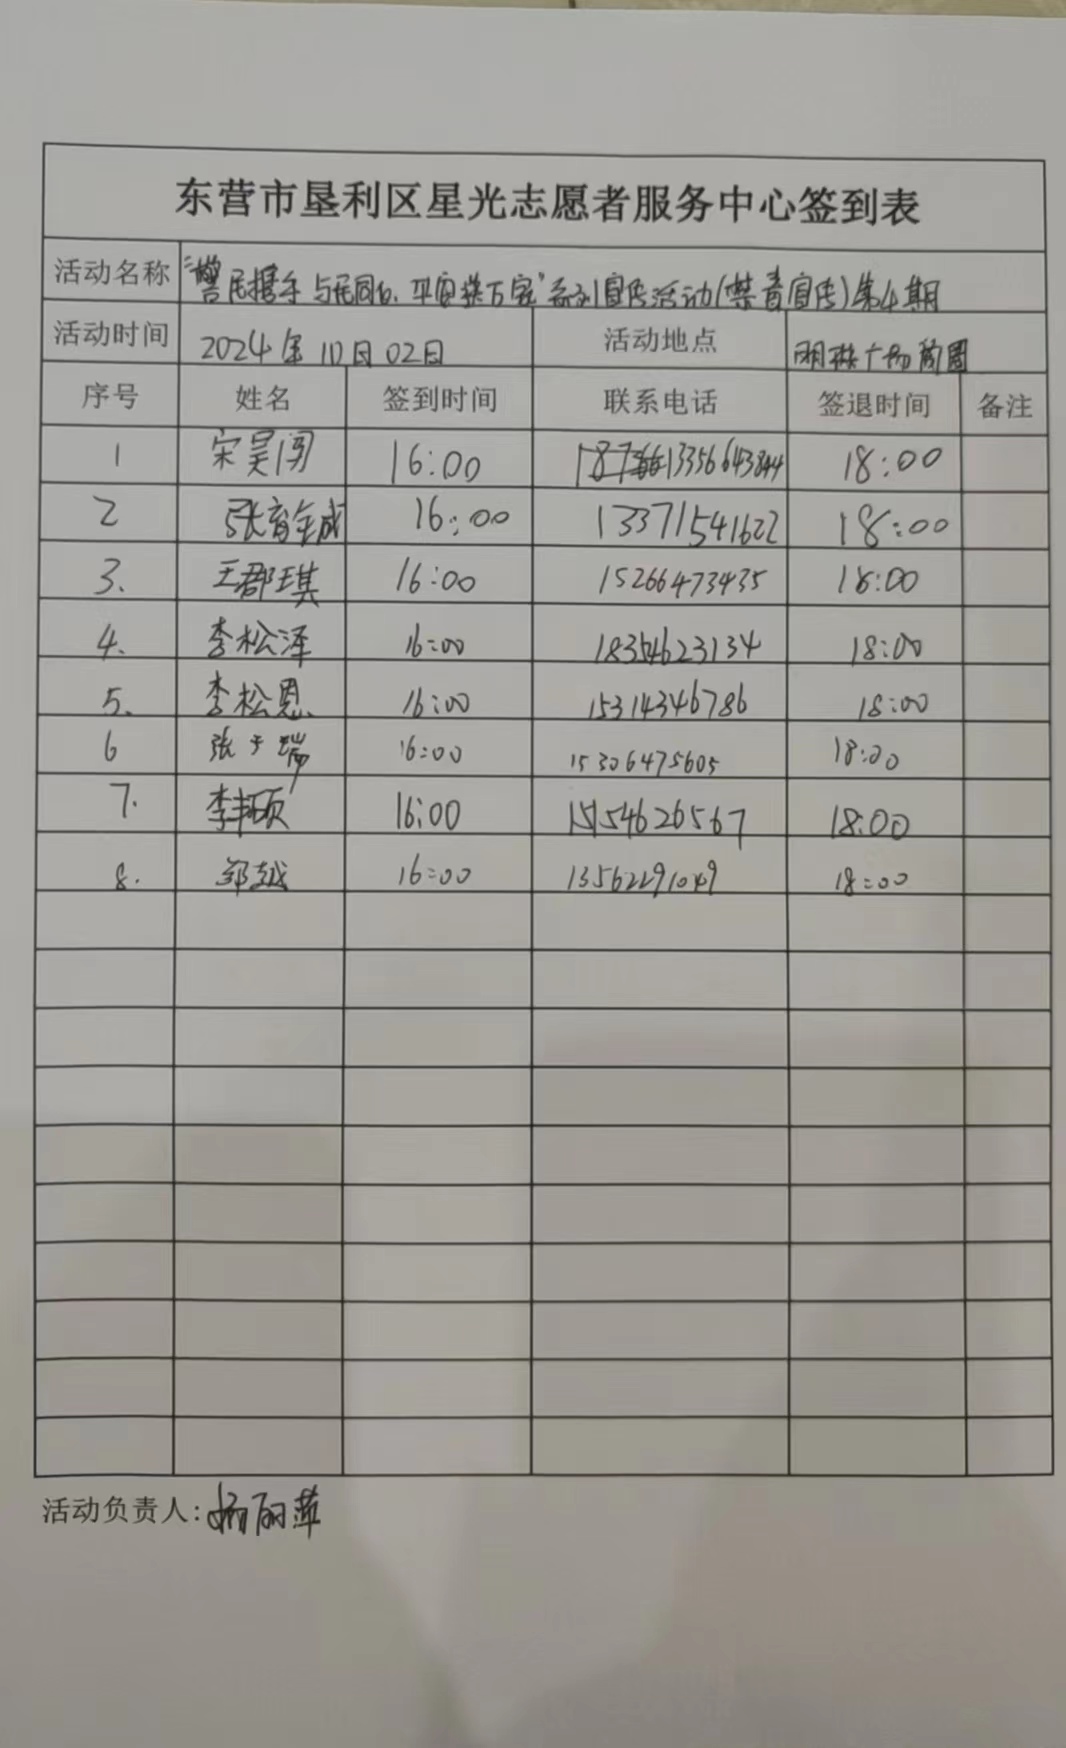 东营市垦利区星光志愿者服务中心签到表
活动名称 "警民携手 与民同心 平安进万家"系列宣传活动(禁毒宣传)第4期
活动时间 2024年10月02日 活动地点 广场
序号 姓名 签到时间 联系电话 签退时间 备注
1 宋昊闯 16:00 13356643844 18:00
2 张育金成 16:00 13371541622 18:00
3. 王郡琪 16:00 15266473435 18:00
4. 李松泽 16:00 18354623134 18:00
5. 李松恩 16:00 15314346786 18:00
6 张于瑞 16:00 15306475605 18:00
7. 李硕 16:00 15154626567 18:00
8. 郑越 16:00 13562291049 18:00
活动负责人:杨丽萍